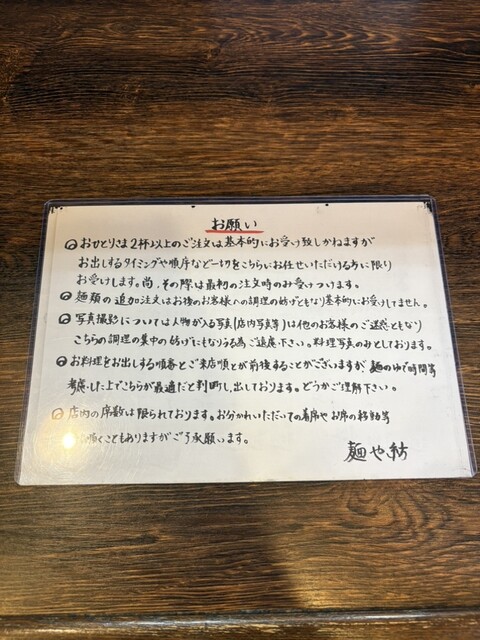 お願い
おひとりさま2杯以上のご注文は基本的にお受け致しかねますが
お出しするタイミングや順序など一切をこちらにお任せいただける方に限り
お受けします。尚、その際は最初の注文時のみ受けつけます。
麺類の追加注文はお後のお客様への調理の妨げともなり基本的にお受けしてません。
写真撮影については人物が入る写真(店内写真等)は他のお客様のご迷惑ともなり
こちらの調理の集中の妨げにもなりうる為ご遠慮下さい。料理写真のみとしております。
お料理をお出しする順番とご来店順とが前後することがございますが 麺のゆで時間等
考慮した上でこちらが最適だと判断し出しております。どうかご理解下さい。
店内の席数は限られております。お分かれいただいての着席やお席の移動等
願うこともありますがご了承願います。
麺や紡